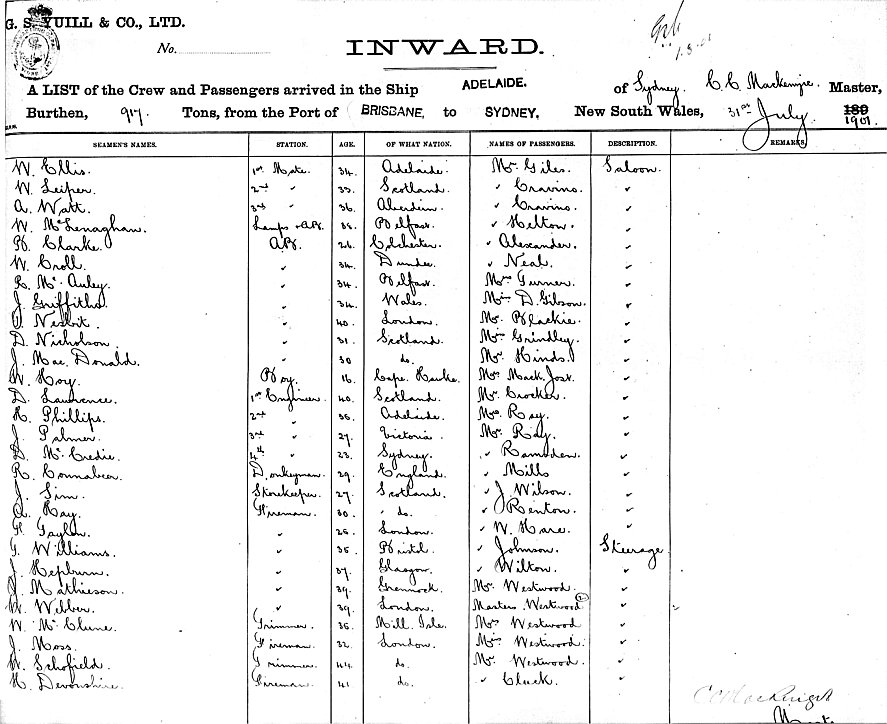 G. S. YUILL & CO., LTD.
No.
INWARD.
1.8.01
A LIST of the Crew and Passengers arrived in the Ship ADELAIDE. of Sydney. C C Mackenzie. Master,
Burthen, 917. Tons, from the Port of BRISBANE, to SYDNEY, New South Wales, 31st July 189 1901.
SEAMEN'S NAMES. STATION. AGE. OF WHAT NATION. NAMES OF PASSENGERS. DESCRIPTION. REMARKS.
W. Ellis. 1st Mate. 34. Adelaide. Mr Giles. Saloon.
W. Leiper. 2nd " 33. Scotland. " Cravino. "
A. Watt. 3rd " 36. Aberdeen. " Cravino. "
W. McLenaghan. Lamps & AB. 35. Belfast. " Helton. "
B. Clarke. AB. 24. Colchester. " Alexander. "
W. Croll. " 34. Dundee. " Neal. "
R. Mc Auley. " 34. Belfast. Mrs Turner. "
J. Griffiths. " 34. Wales. Miss D. Gibson. "
Nesbit. " 40. London. Mr. Blackie. "
D. Nicholson. " 31. Scotland. Miss Grindley. "
J. Mac Donald. " 30 do. Mr. Hinds. "
W. Hoy. Boy. 16. Cape Hawke. Mrs Mack. Jost. "
D. Lawrance. 1st Engineer. 40. Scotland. Mr. Crocker. "
H. Phillips. 2nd " 36. Adelaide. Mrs. Ray. "
J. Palmer. 3rd " 27. Victoria. Mr. Ray. "
D. Mc Credie. 4th " 23. Sydney. " Ramsden. "
R. Connabeer. Donkeyman. 29. England. " Mills "
J. Sim. Storekeeper. 27. Scotland. " J Wilson. "
A. Hay. Fireman. 30. " do. " Renton. "
Taylor. " 26. London. " W. Hare. "
G. Williams. " 35. Bristol. " Johnson. Steerage
J. Hepburn. " 37. Glasgow. " Wilton. "
J. Mathieson. " 39. Greenock. Mr. Westwood. "
W. Webber. " 39. London. Masters Westwood (2) "
W. Mc Clune. Trimmer. 36. Mill Isle. Mrs Westwood "
J. Moss. Fireman. 32. London. Miss Westwood. "
W. Schofield. Trimmer. 44. do. Mr. Westwood. "
H. Devonshire. Fireman. 41. do. " Cluck. "